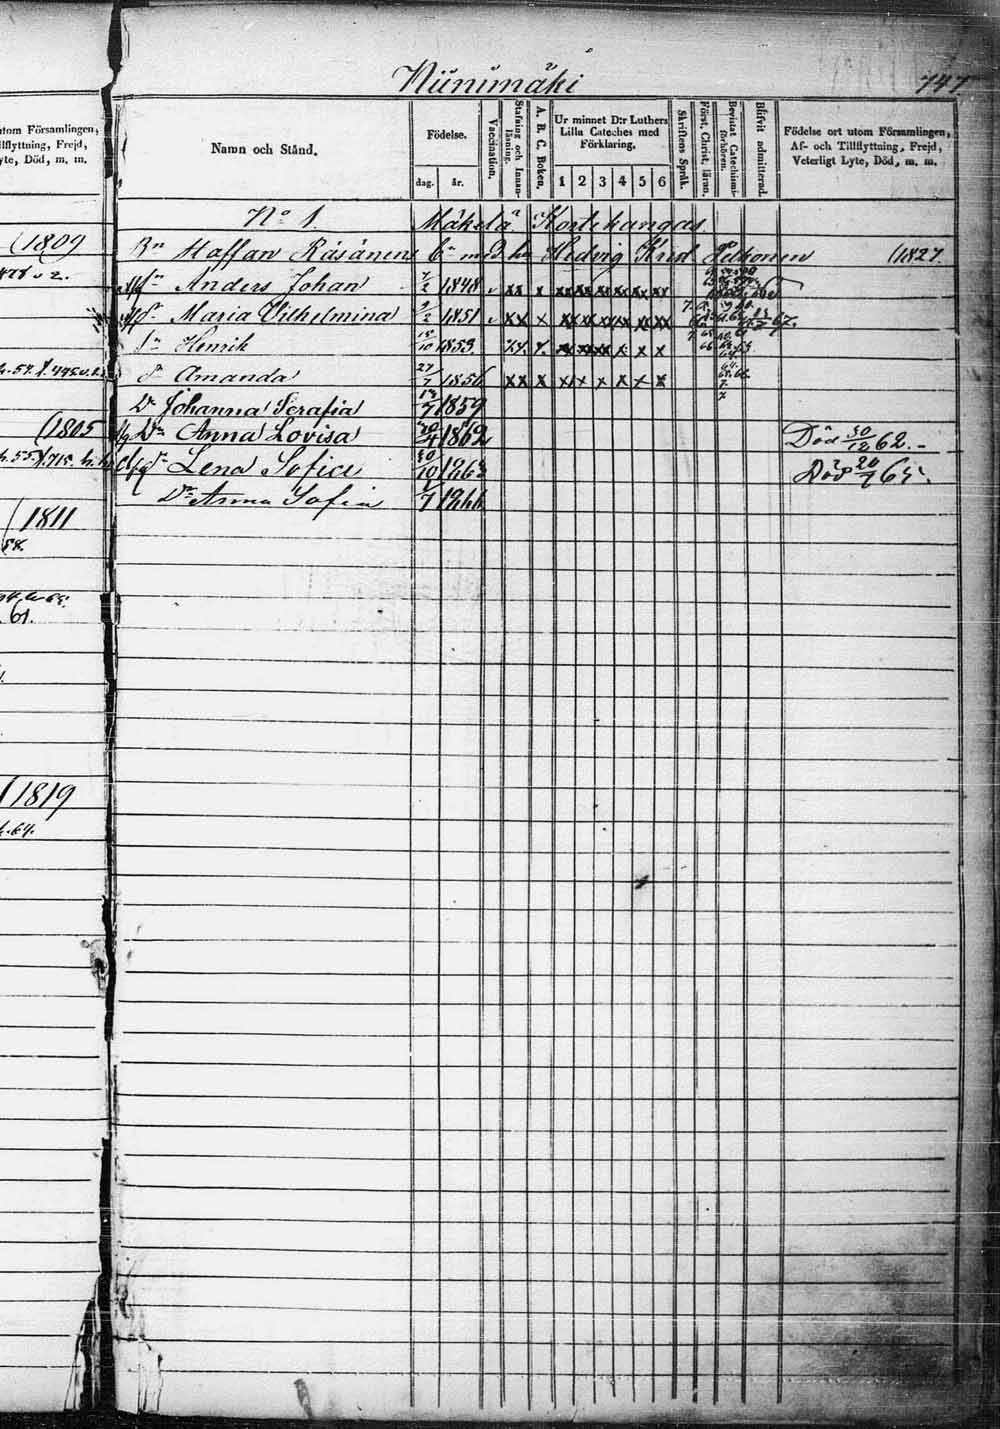 Niinimäki
747
utom Församlingen,
illflyttning, Frejd,
yte, Död, m. m.
Namn och Stånd.
Födelse.
dag. år.
Vaccination.
Stafning och Innan-
läsning.
A. B. C. Boken.
Ur minnet D:r Luthers
Lilla Cateches med
Förklaring.
1 2 3 4 5 6
Skriftens Språk.
Först. Christ. läran.
Bevistat Catechismi-
förhören.
Blifvit admitterad.
Födelse ort utom Församlingen,
Af- och Tillflyttning, Frejd,
Veterligt Lyte, Död, m. m.
No 1. Mäkelä Kortekangas
Bn Staffan Räsänens med Hedvig Pelkonen (1827.
Sn Anders Johan 7/2 1848
Dr Maria Vilhelmina 9/2 1851
Sn Henrik 15/10 1853
Dr Amanda 27/7 1856
Dr Johanna Serafia 1859
Dr Anna Lovisa 20/4 1862 Död 30/12 62.
Dr Lena Sofia 30/10 1863 Död 20/7 65.
Dr Anna Sofia 1866
(1809
(1805
(1811
58.
61.
(1819